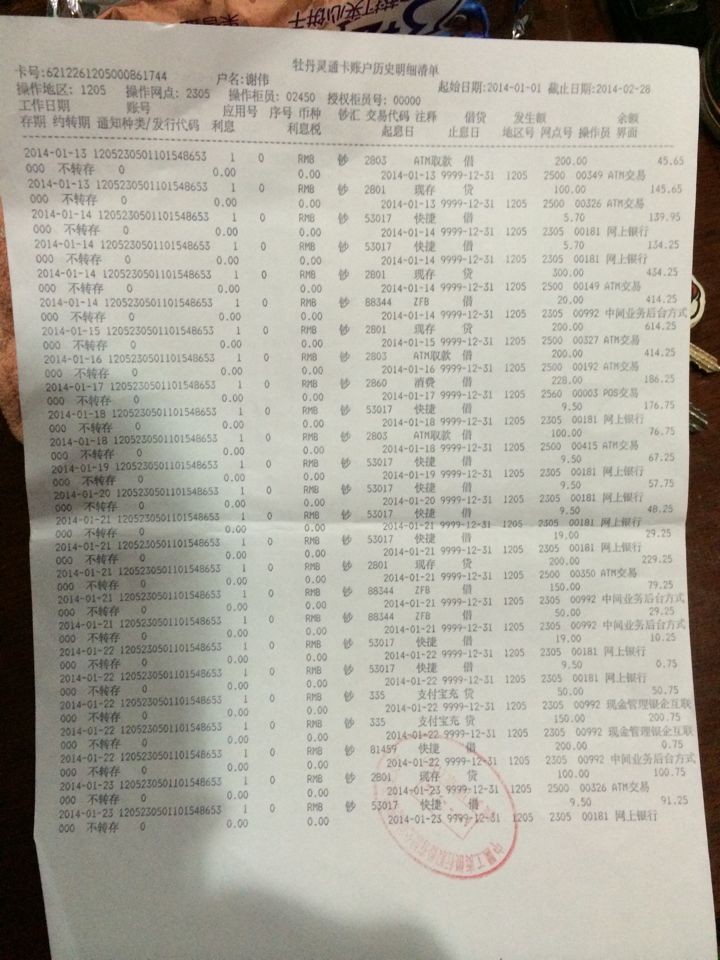 夹心饼干
牡丹灵通卡账户历史明细清单
卡号:6212261205000861744 户名:谢伟 起始日期:2014-01-01 截止日期:2014-02-28
操作地区: 1205 操作网点: 2305 操作柜员: 02450 授权柜员号: 00000
工作日期 账号 应用号 序号 币种 钞汇 交易代码 注释 借贷 发生额 余额
存期 约转期 通知种类/发行代码 利息 利息税 起息日 止息日 地区号 网点号 操作员 界面
2014-01-13 1205230501101548653 1 0 RMB 钞 2803 ATM取款 借 200.00 45.65
000 不转存 0 0.00 0.00 2014-01-13 9999-12-31 1205 2500 00349 ATM交易
2014-01-13 1205230501101548653 1 0 RMB 钞 2801 现存 贷 100.00 145.65
000 不转存 0 0.00 0.00 2014-01-13 9999-12-31 1205 2500 00326 ATM交易
2014-01-14 1205230501101548653 1 0 RMB 钞 53017 快捷 借 5.70 139.95
000 不转存 0 0.00 0.00 2014-01-14 9999-12-31 1205 2305 00181 网上银行
2014-01-14 1205230501101548653 1 0 RMB 钞 53017 快捷 借 5.70 134.25
000 不转存 0 0.00 0.00 2014-01-14 9999-12-31 1205 2305 00181 网上银行
2014-01-14 1205230501101548653 1 0 RMB 钞 2801 现存 贷 300.00 434.25
000 不转存 0 0.00 0.00 2014-01-14 9999-12-31 1205 2500 00149 ATM交易
2014-01-14 1205230501101548653 1 0 RMB 钞 88344 ZFB 借 20.00 414.25
000 不转存 0 0.00 0.00 2014-01-14 9999-12-31 1205 2305 00992 中间业务后台方式
2014-01-15 1205230501101548653 1 0 RMB 钞 2801 现存 贷 200.00 614.25
000 不转存 0 0.00 0.00 2014-01-15 9999-12-31 1205 2500 00327 ATM交易
2014-01-16 1205230501101548653 1 0 RMB 钞 2803 ATM取款 借 200.00 414.25
000 不转存 0 0.00 0.00 2014-01-16 9999-12-31 1205 2500 00192 ATM交易
2014-01-17 1205230501101548653 1 0 RMB 钞 2860 消费 借 228.00 186.25
000 不转存 0 0.00 0.00 2014-01-17 9999-12-31 1205 2560 00003 POS交易
2014-01-18 1205230501101548653 1 0 RMB 钞 53017 快捷 借 9.50 176.75
000 不转存 0 0.00 0.00 2014-01-18 9999-12-31 1205 2305 00181 网上银行
2014-01-18 1205230501101548653 1 0 RMB 钞 2803 ATM取款 借 100.00 76.75
000 不转存 0 0.00 0.00 2014-01-18 9999-12-31 1205 2500 00415 ATM交易
2014-01-19 1205230501101548653 1 0 RMB 钞 53017 快捷 借 9.50 67.25
000 不转存 0 0.00 0.00 2014-01-19 9999-12-31 1205 2305 00181 网上银行
2014-01-20 1205230501101548653 1 0 RMB 钞 53017 快捷 借 9.50 57.75
000 不转存 0 0.00 0.00 2014-01-20 9999-12-31 1205 2305 00181 网上银行
2014-01-21 1205230501101548653 1 0 RMB 钞 53017 快捷 借 9.50 48.25
000 不转存 0 0.00 0.00 2014-01-21 9999-12-31 1205 2305 00181 网上银行
2014-01-21 1205230501101548653 1 0 RMB 钞 53017 快捷 借 19.00 29.25
000 不转存 0 0.00 0.00 2014-01-21 9999-12-31 1205 2305 00181 网上银行
2014-01-21 1205230501101548653 1 0 RMB 钞 2801 现存 贷 200.00 229.25
000 不转存 0 0.00 0.00 2014-01-21 9999-12-31 1205 2500 00350 ATM交易
2014-01-21 1205230501101548653 1 0 RMB 钞 88344 ZFB 借 150.00 79.25
000 不转存 0 0.00 0.00 2014-01-21 9999-12-31 1205 2305 00992 中间业务后台方式
2014-01-21 1205230501101548653 1 0 RMB 钞 88344 ZFB 借 50.00 29.25
000 不转存 0 0.00 0.00 2014-01-21 9999-12-31 1205 2305 00992 中间业务后台方式
2014-01-22 1205230501101548653 1 0 RMB 钞 53017 快捷 借 19.00 10.25
000 不转存 0 0.00 0.00 2014-01-22 9999-12-31 1205 2305 00181 网上银行
2014-01-22 1205230501101548653 1 0 RMB 钞 53017 快捷 借 9.50 0.75
000 不转存 0 0.00 0.00 2014-01-22 9999-12-31 1205 2305 00181 网上银行
2014-01-22 1205230501101548653 1 0 RMB 钞 335 支付宝充 贷 50.00 50.75
000 不转存 0 0.00 0.00 2014-01-22 9999-12-31 1205 2305 00992 现金管理银企互联
2014-01-22 1205230501101548653 1 0 RMB 钞 335 支付宝充 贷 150.00 200.75
000 不转存 0 0.00 0.00 2014-01-22 9999-12-31 1205 2305 00992 现金管理银企互联
2014-01-22 1205230501101548653 1 0 RMB 钞 81459 快捷 借 200.00 0.75
000 不转存 0 0.00 0.00 2014-01-22 9999-12-31 1205 2305 00992 中间业务后台方式
2014-01-23 1205230501101548653 1 0 RMB 钞 2801 现存 贷 100.00 100.75
000 不转存 0 0.00 0.00 2014-01-23 9999-12-31 1205 2500 00326 ATM交易
2014-01-23 1205230501101548653 1 0 RMB 钞 53017 快捷 借 9.50 91.25
000 不转存 0 0.00 0.00 2014-01-23 9999-12-31 1205 2305 00181 网上银行